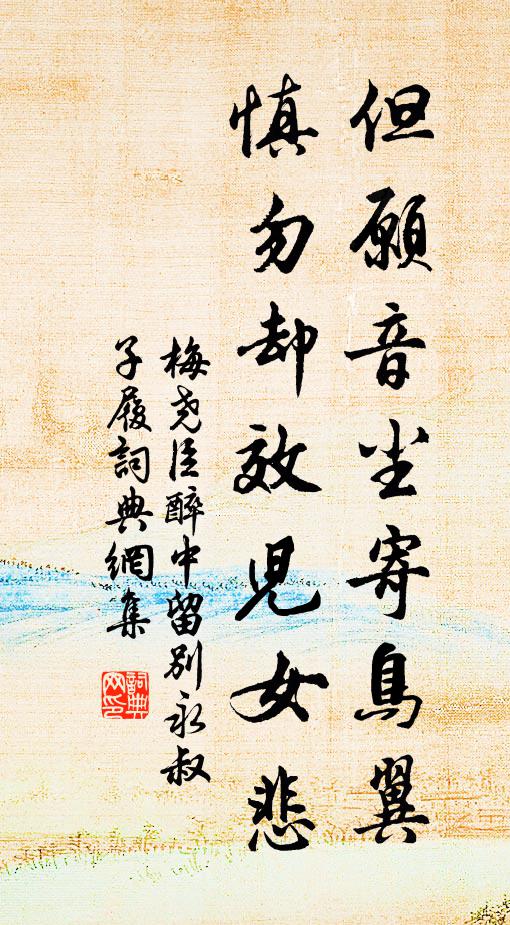 但願音尘寄鳥翼
慎勿却效児女悲
梅尧臣醉中留别永叔
子履詞典網集
詞典網印